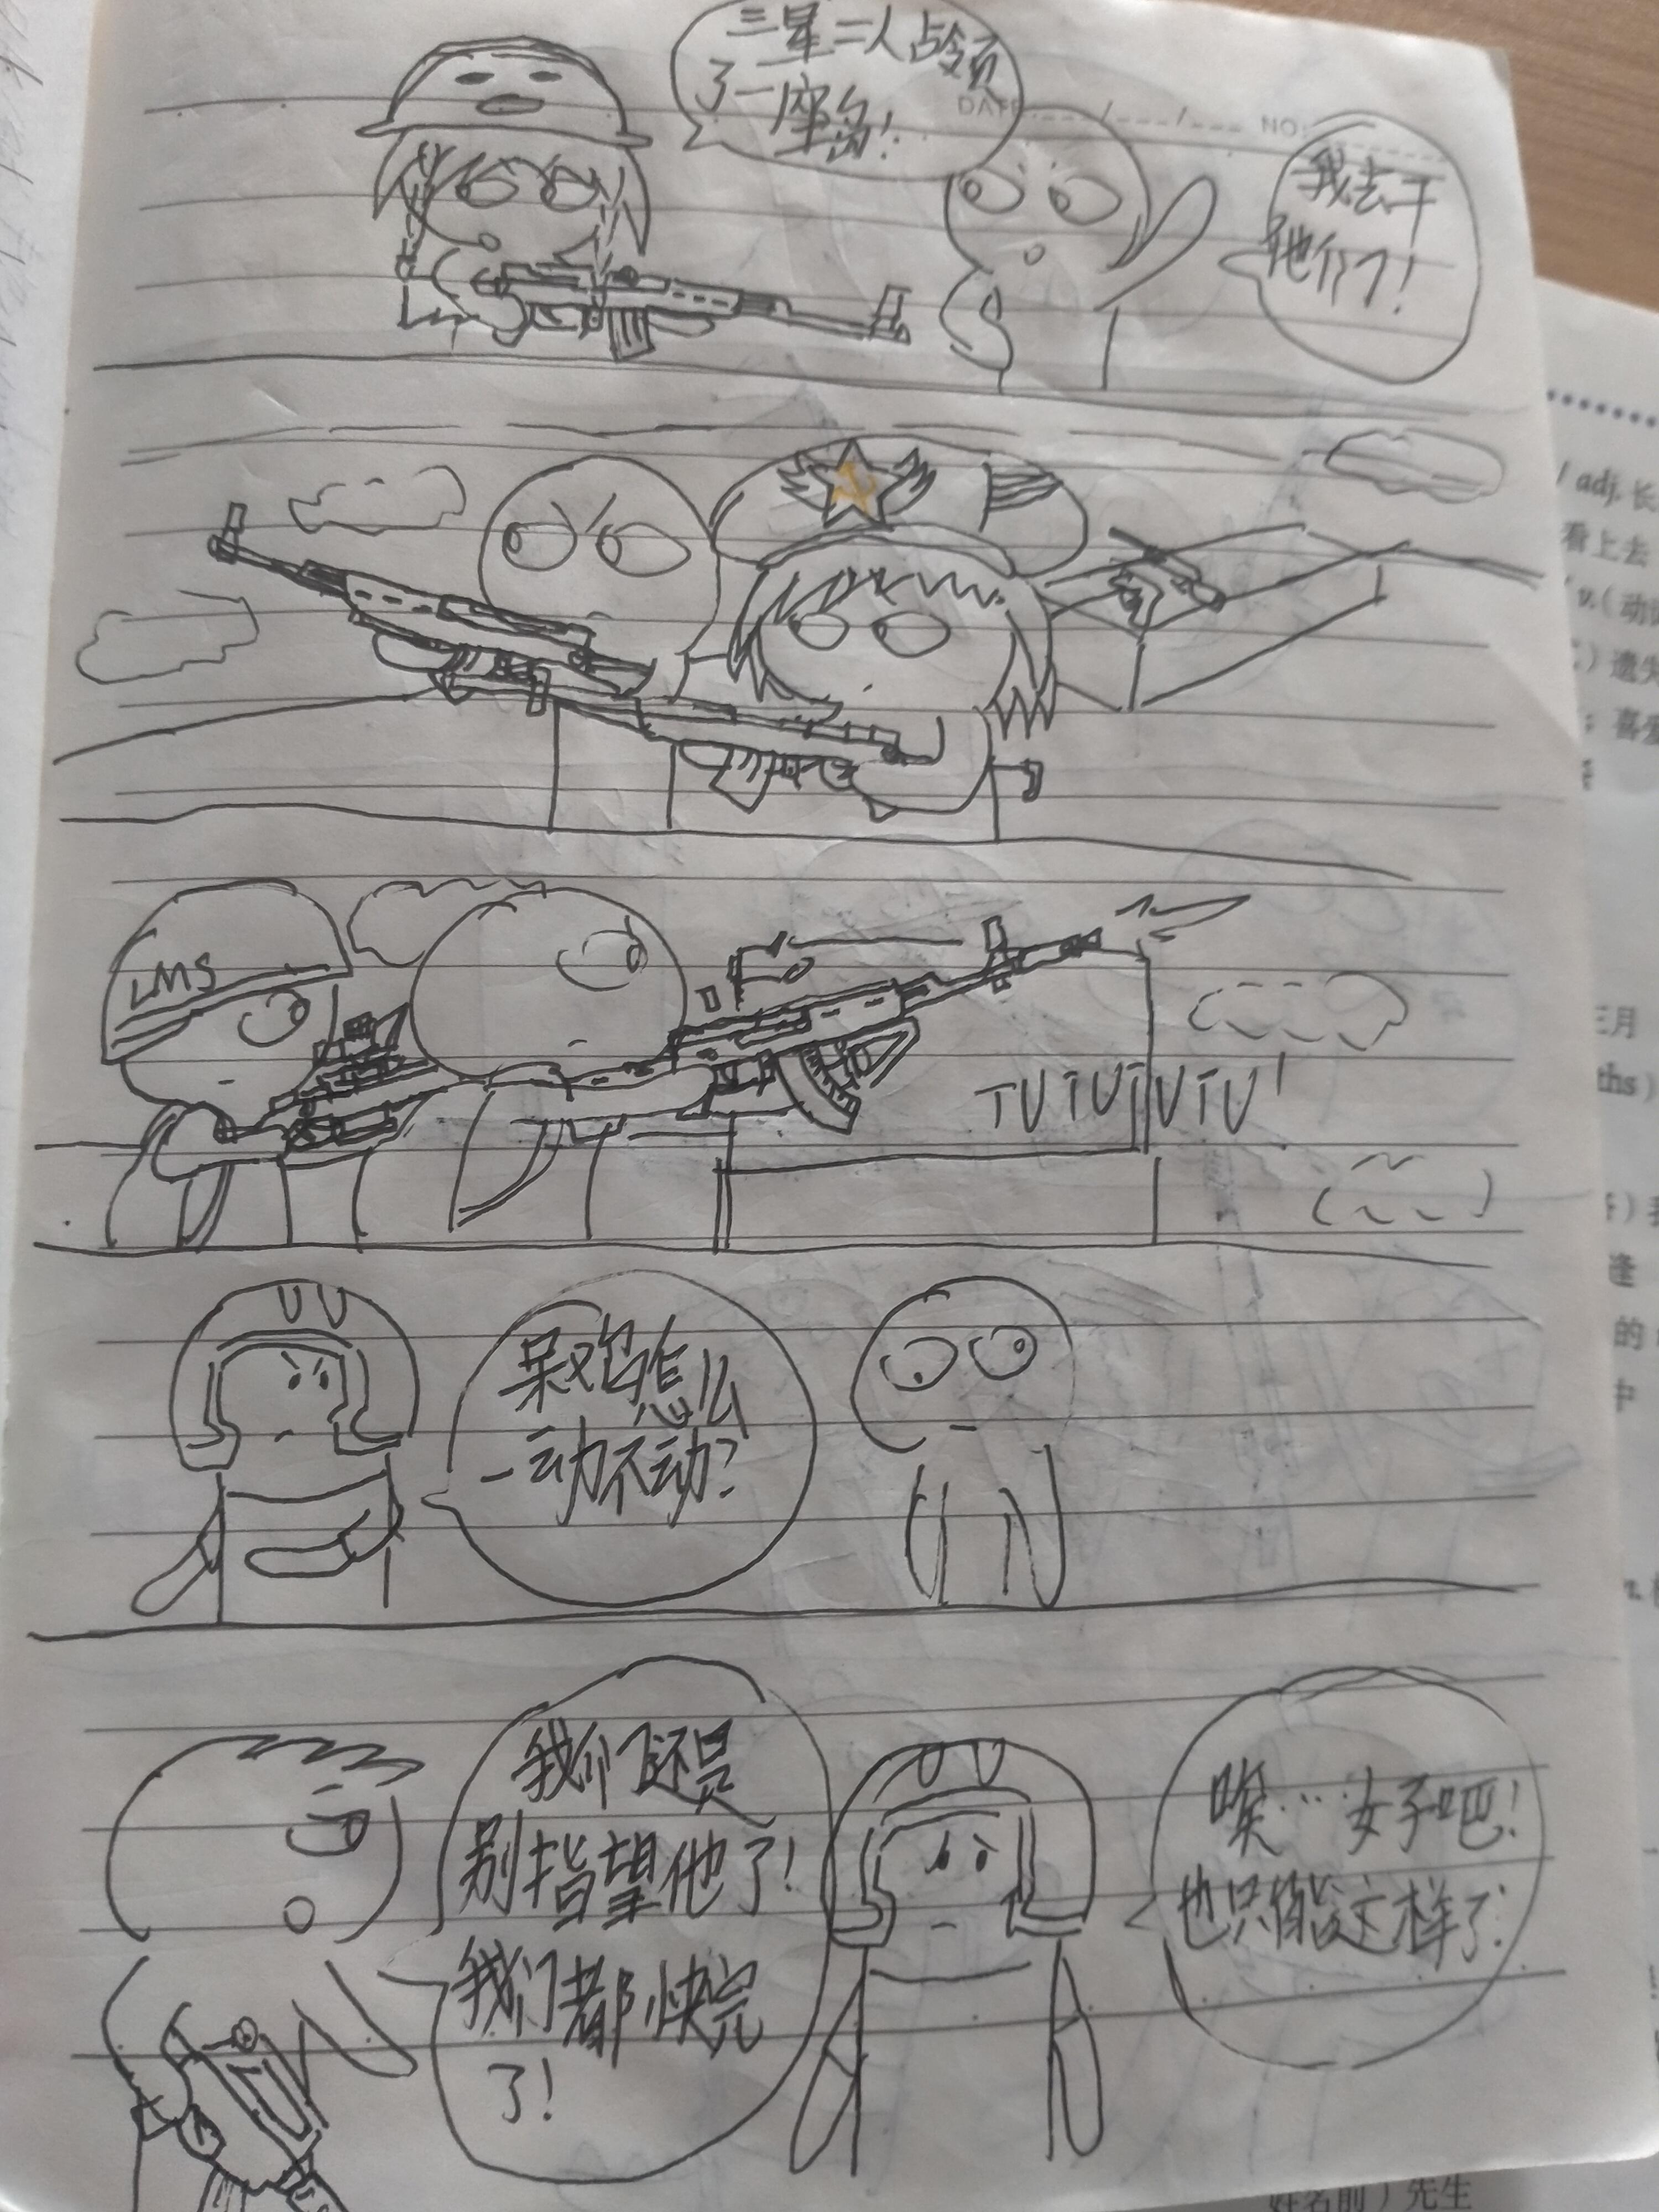 三星二人占领
了一座岛!
DATE
NO:
我去干
他们了!
LMS
TUTUTUTU!
呆双包怎么
一动不动?
我们还是
别指望他了!
我们都快完
了!
唉… 好吧!
也只能这样了!
adj. 长
看上去
v.(动词
遗失
喜爱
三月
ths)
逢
的
中
n.
姓名前)先生